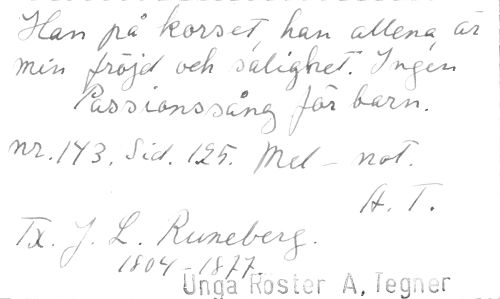 Han på korset, han allena, är
min fröjd och salighet. Ingen
Passionssång för barn.
nr. 143. Sid. 125. Mel - not.
A. T.
Tx. J. L. Runeberg.
1804-1877.
Unga Röster A, Tegner